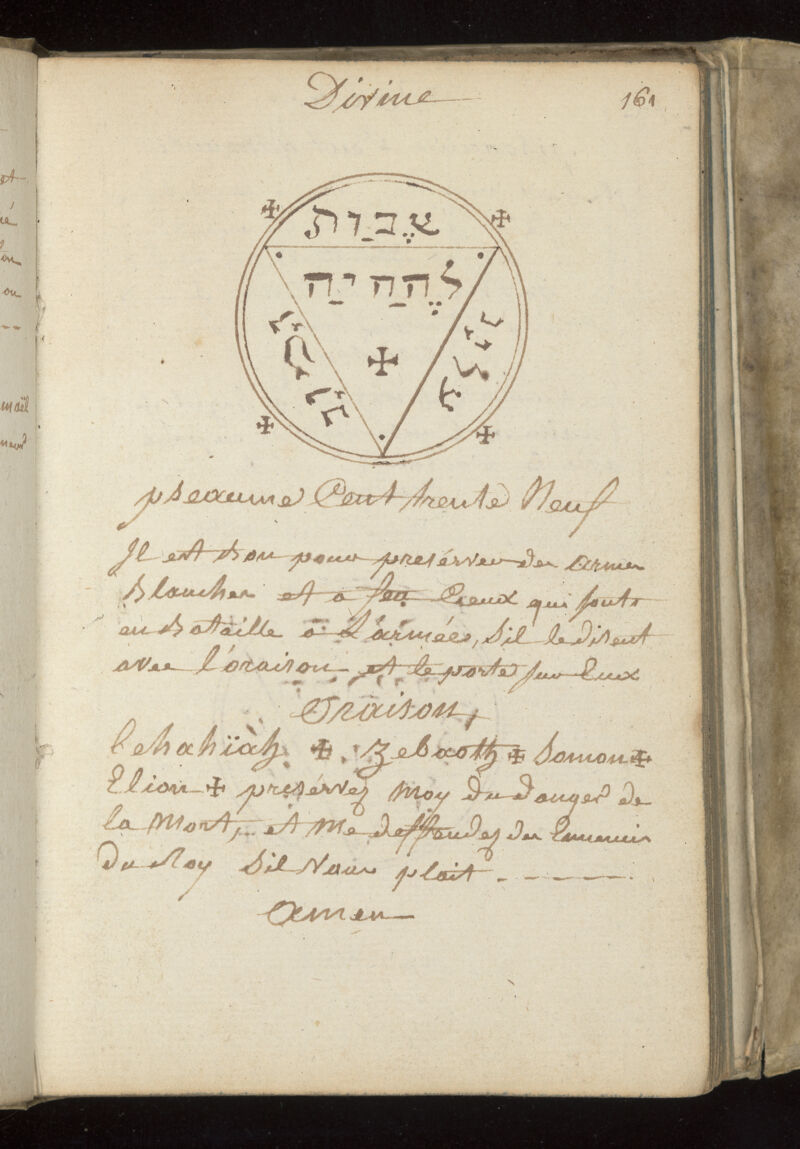 Divine
161
להחיה
pseaume Cent trente Neuf
Il est bon pour préserver des armes
blanches et a feu Ceux qui sonts
en bataille o L'armées, Sil le disent
avec l'oraison et le porte sur Eux
Oraison,
Lehahïah ✠ Zebaoth ✠ Somon ✠
Elion ✠ preservez moy du danger de
la Mort, et Me deffendez des Ennemis
du Roy Sil Vous plait - - - - - -
amen